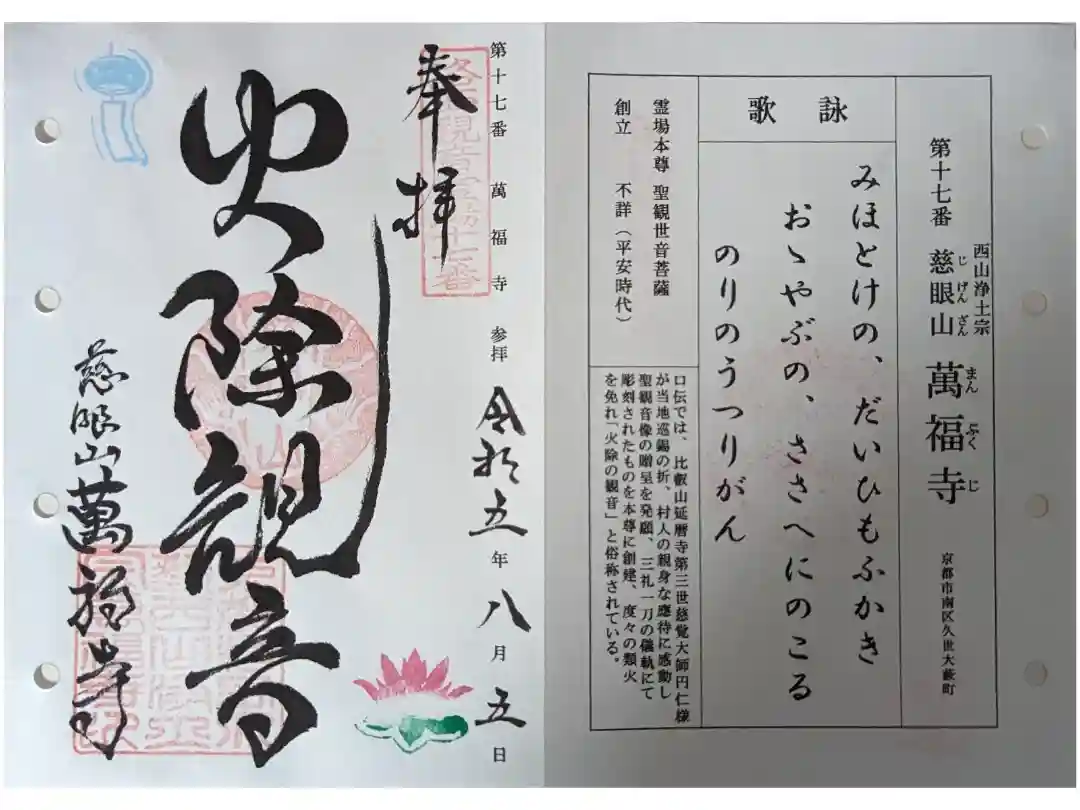 西山浄土宗
第十七番 慈眼山 萬福寺
じげんざん まんぷくじ
京都市南区久世大薮町
詠歌
みほとけの、だいひもふかき
おゝやぶの、ささへにのこる
のりのうつりがん
霊場本尊 聖観世音菩薩
創立 不詳（平安時代）
口伝では、比叡山延暦寺第三世慈覚大師円仁様
が当地巡錫の折、村人の親身な應待に感動し
聖観音像の贈呈を発願、三礼一刀の儀軌にて
彫刻されたものを本尊に創建、度々の類火
を免れ「火除の観音」と俗称されている。
第十七番 萬福寺 参拝 令和五年八月五日
奉拝
火除観音
慈眼山萬福寺